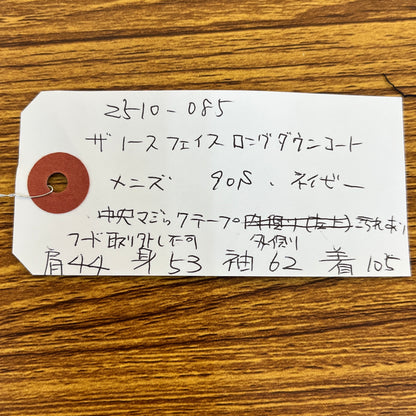 2510-085
ザノースフェイスロングダウンコート
メンズ 90S、ネイビー
中央マジックテープ 内側り(左上)汚れあり
フード取り外し不可 外側り
肩44 身53 袖62 着105